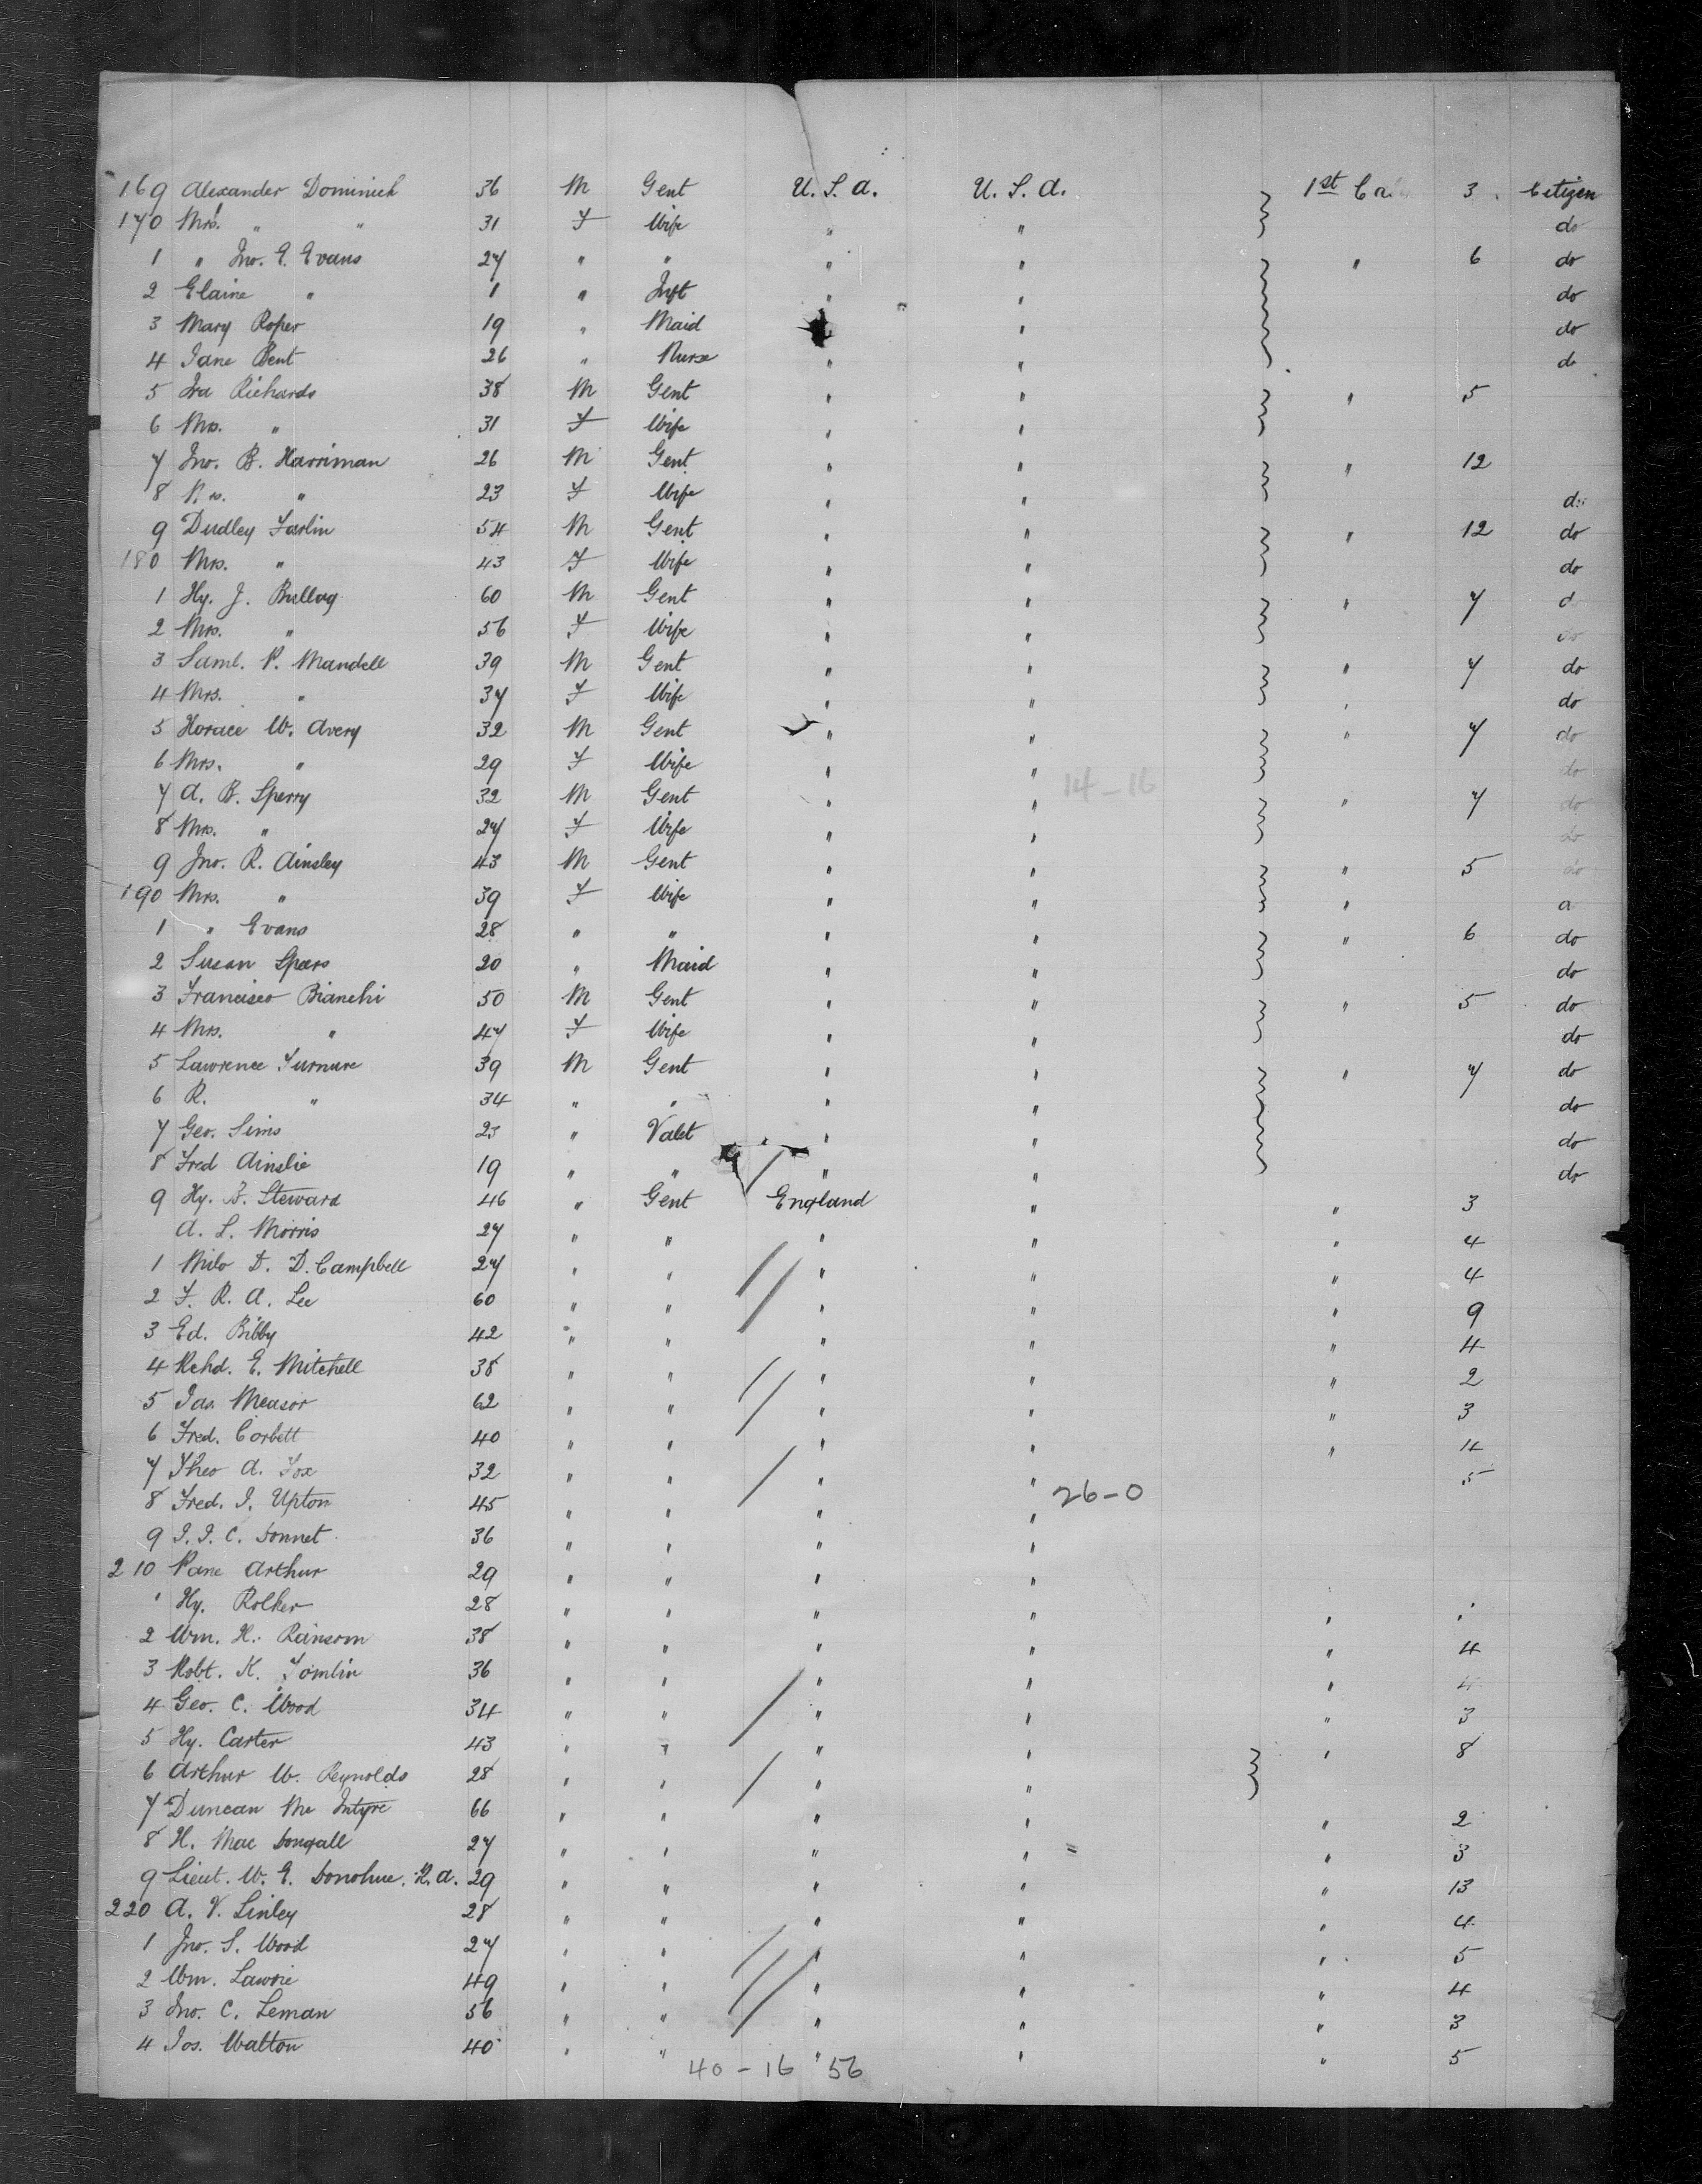 169 Alexander Dominick 36 M Gent U.S.A. U.S.A. 1st Ca 3 Citizen
170 Mrs. " " 31 F Wife " " do
1 " Jno. E. Evans 27 " " " " " 6 do
2 Elaine " 1 " Inft " " do
3 Mary Roper 19 " Maid " do
4 Jane Bent 26 " Nurse " " do
5 Ira Richards 38 M Gent " " " 5
6 Mrs. " 31 F Wife " "
7 Jno. B. Harriman 26 M Gent " " " 12
8 Mrs. " 23 F Wife " " do
9 Dudley Farlin 54 M Gent " " " 12 do
180 Mrs. " 43 F Wife " " do
1 Hy. J. 60 M Gent " " " 7 d
2 Mrs. " 56 F Wife " " do
3 Saml. P. Mandell 39 M Gent " " " 7 do
4 Mrs. " 37 F Wife " " " do
5 Horace W. Avery 32 M Gent " " " 7 do
6 Mrs. " 29 F Wife " " do
14-16
7 A. B. Sperry 32 M Gent " " " 7 do
8 Mrs. " 27 F Wife " " do
9 Jno. R. Ainsley 43 M Gent " " " 5 do
190 Mrs. " 39 F Wife " " "
1 " Evans 28 " " " " " 6 do
2 Susan Spears 20 " Maid " " do
3 Francisco Bianchi 50 M Gent " " " 5 do
4 Mrs. " 47 F Wife " " do
5 Lawrence Turnure 39 M Gent " " " 7 do
6 R. " 34 " " " " do
7 Geo. Sims 23 " Valet " " do
8 Fred Ainslie 19 " " " " do
9 Hy. B. Steward 46 " Gent England " " 3
A. L. Morris 27 " " " " " 4
1 Milo D. D. Campbell 27 " " " " " 4
2 F. R. A. Lee 60 " " " " " 9
3 Ed. Bibby 42 " " " " " 4
4 Rchd. E. Mitchell 38 " " " " " 2
5 Jas. Measor 62 " " " " " 3
6 Fred. Corbett 40 " " " " " 4
7 Theo A. Fox 32 " " " " 5
26-0
8 Fred. J. Upton 45 " " " "
9 J. J. C. Donnet 36 " " " "
210 Pane Arthur 29 " " " "
1 Hy. Rolker 28 " " " " "
2 Wm. H. Ransom 38 " " " " " 4
3 Robt. K. Tomlin 36 " " " " " 4
4 Geo. C. Wood 34 " " " " " 3
5 Hy. Carter 43 " " " " " 8
6 Arthur W. Reynolds 28 " " " "
7 Duncan Mc Intyre 66 " " " " " 2
8 H. Mac Dougall 27 " " " " " 3
9 Lieut. W. E. Donohue. R.A. 29 " " " " " 13
220 A. V. Linley 28 " " " " " 4
1 Jno. S. Wood 27 " " " " " 5
2 Wm. Lawrie 49 " " " " " 4
3 Jno. C. Leman 56 " " " " " 3
4 Jos. Walton 40 " " " " " 5
40-16 56